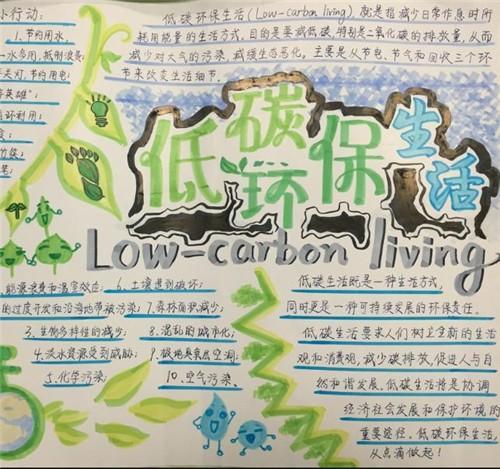 小行动:
1、节约用水,
一水多用,抵制浪费;
走灯,节约用电!
英雄”。
循环利用;
低碳环保生活(Low-carbon living),就是指减少日常作息时所
耗用能量的生活方式,目的是要减低碳,特别是二氧化碳的排放量,从而
减少对大气的污染,减缓生态恶化。主要是从节电、节气和回收三个环
节来改变生活细节。
低碳环保生活
Low-carbon living
能源浪费和温室效应;
的过度开发和沿海地带被污染;
3、生物多样性的减少;
4、淡水资源受到威胁;
5、化学污染;
6、土壤遭到破坏;
7、森林面积减少;
8、混乱的城市化;
9、极地臭氧层空洞;
10、空气污染。
低碳生活既是一种生活方式,
同时更是一种可持续发展的环保责任。
低碳生活要求人们树立全新的生活
观和消费观,减少碳排放,促进人与自
然和谐发展。低碳生活将是协调
经济社会发展和保护环境的
重要途径。低碳环保生活,
从点滴做起!